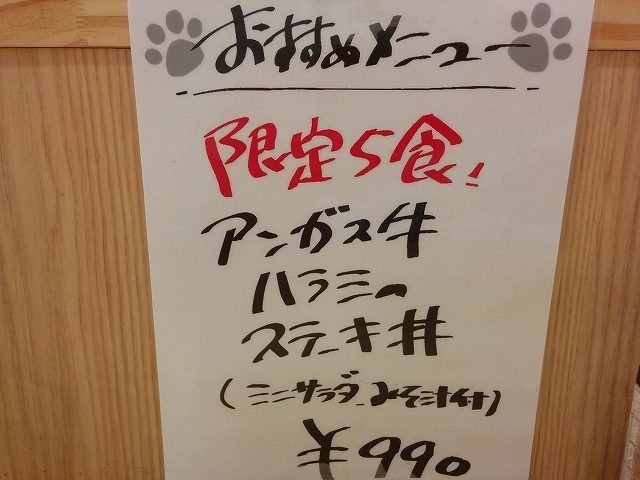 おすすめメニュー
限定5食!
アンガス牛
ハラミの
ステーキ丼
(ミニサラダ、みそ汁付)
¥990